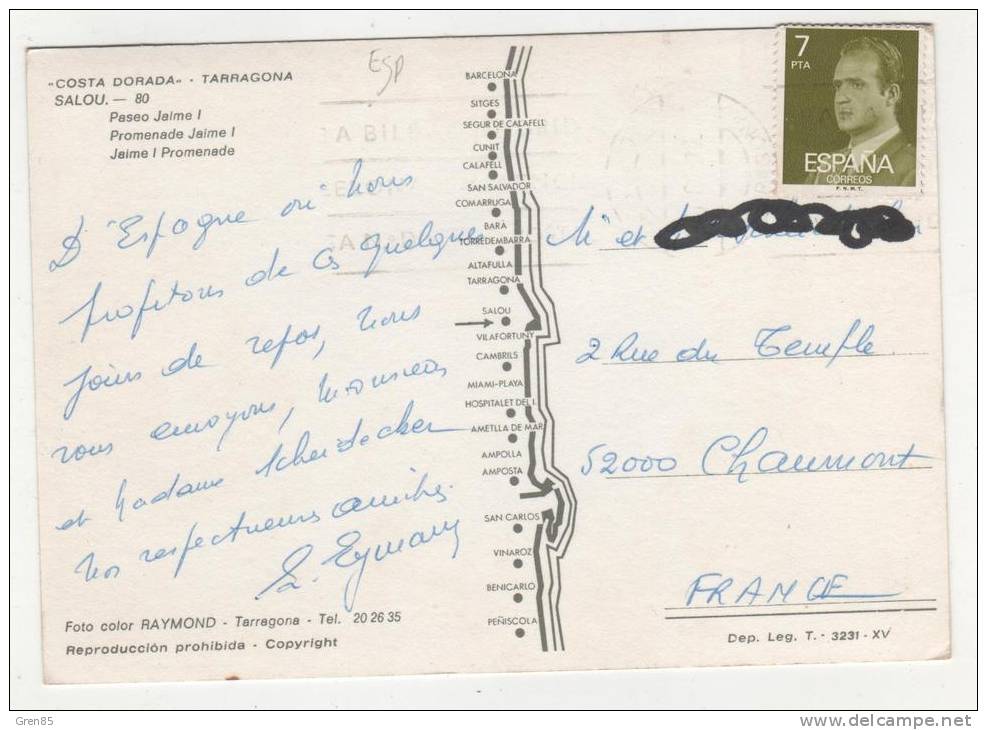 "COSTA DORADA" - TARRAGONA
SALOU. — 80
Paseo Jaime I
Promenade Jaime I
Jaime I Promenade
Esp
D'Espagne où nous
profitons de ces quelques
jours de repos, nous
vous envoyons, Monsieur
et Madame Scheidecker
nos respectueuses amitiés.
Foto color RAYMOND - Tarragona - Tel. 20 26 35
Reproducción prohibida - Copyright
BARCELONA
SITGES
SEGUR DE CALAFELL
CUNIT
CALAFELL
SAN SALVADOR
COMARRUGA
BARA
TORREDEMBARRA
ALTAFULLA
TARRAGONA
SALOU
VILAFORTUNY
CAMBRILS
MIAMI-PLAYA
HOSPITALET DEL I.
AMETLLA DE MAR
AMPOLLA
AMPOSTA
SAN CARLOS
VINAROZ
BENICARLO
PEÑISCOLA
7
PTA
ESPAÑA
CORREOS
F.N.M.T.
Mr et
2 Rue du Temple
52000 Chaumont
FRANCE
Dep. Leg. T. - 3231 - XV
Gren85
www.delcampe.net